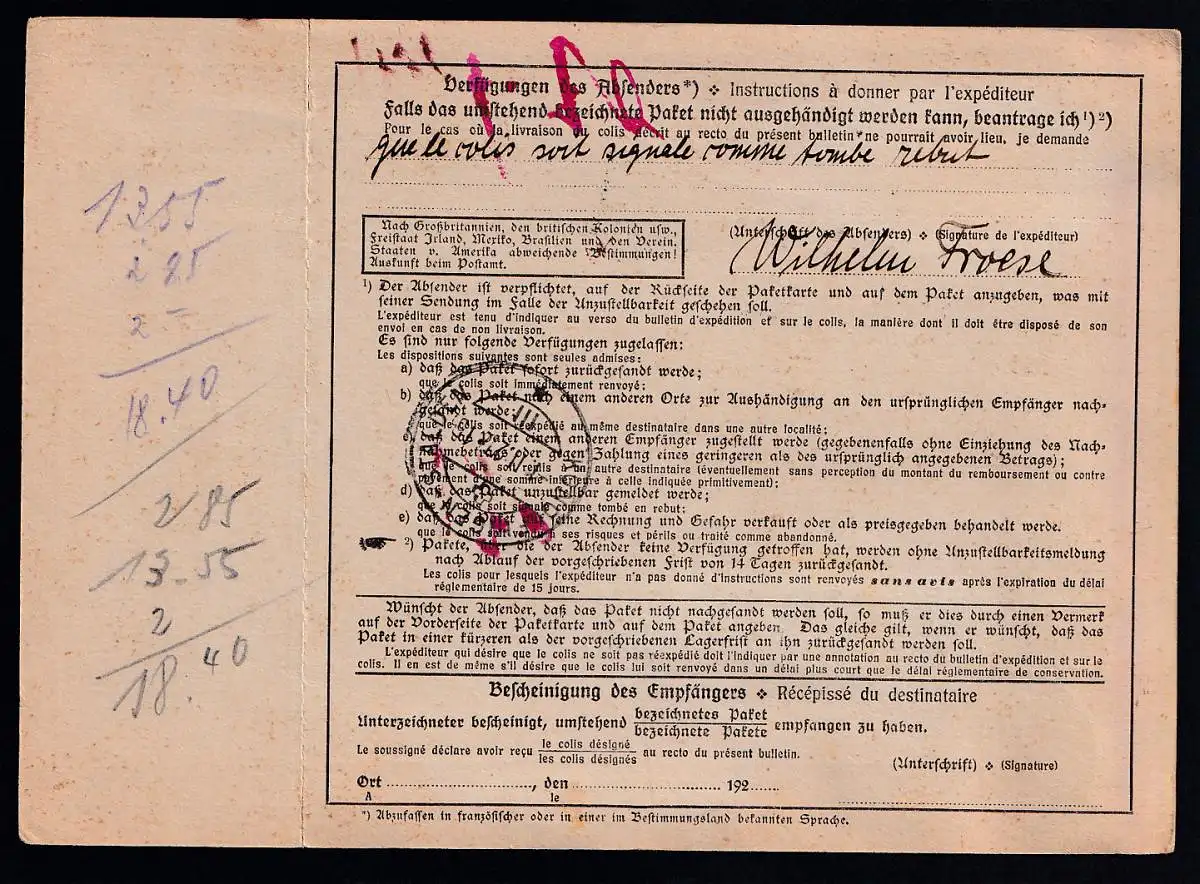 1355
285
2 -
18.40
285
13-55
2
18.40
Verfügungen des Absenders*) ❖ Instructions à donner par l'expéditeur
Falls das umstehend bezeichnete Paket nicht ausgehändigt werden kann, beantrage ich¹)²)
Pour le cas où la livraison du colis décrit au recto du présent bulletin ne pourrait avoir lieu, je demande
que le colis soit signale comme tombe rebut
Nach Großbritannien, den britischen Kolonien usw.,
Freistaat Irland, Mexiko, Brasilien und den Verein.
Staaten v. Amerika abweichende Bestimmungen!
Auskunft beim Postamt.
(Unterschrift des Absenders) ❖ (Signature de l'expéditeur)
Wilhelm Froese
¹) Der Absender ist verpflichtet, auf der Rückseite der Paketkarte und auf dem Paket anzugeben, was mit
seiner Sendung im Falle der Unzustellbarkeit geschehen soll.
L'expéditeur est tenu d'indiquer au verso du bulletin d'expédition et sur le colis, la manière dont il doit être disposé de son
envoi en cas de non livraison.
Es sind nur folgende Verfügungen zugelassen:
Les dispositions suivantes sont seules admises:
a) daß das Paket sofort zurückgesandt werde;
que le colis soit immédiatement renvoyé;
b) daß das Paket nach einem anderen Orte zur Aushändigung an den ursprünglichen Empfänger nach-
gesandt werde;
que le colis soit réexpédié au même destinataire dans une autre localité;
c) daß das Paket einem anderen Empfänger zugestellt werde (gegebenenfalls ohne Einziehung des Nach-
nahmebetrags oder gegen Zahlung eines geringeren als des ursprünglich angegebenen Betrags);
que le colis soit remis à un autre destinataire (éventuellement sans perception du montant du remboursement ou contre
payement d'une somme inférieure à celle indiquée primitivement);
d) daß das Paket unzustellbar gemeldet werde;
que le colis soit signalé comme tombé en rebut;
e) daß das Paket auf seine Rechnung und Gefahr verkauft oder als preisgegeben behandelt werde.
que le colis soit vendu à ses risques et périls ou traité comme abandonné.
²) Pakete, über die der Absender keine Verfügung getroffen hat, werden ohne Unzustellbarkeitsmeldung
nach Ablauf der vorgeschriebenen Frist von 14 Tagen zurückgesandt.
Les colis pour lesquels l'expéditeur n'a pas donné d'instructions sont renvoyés sans avis après l'expiration du délai
réglementaire de 15 jours.
Wünscht der Absender, daß das Paket nicht nachgesandt werden soll, so muß er dies durch einen Vermerk
auf der Vorderseite der Paketkarte und auf dem Paket angeben. Das gleiche gilt, wenn er wünscht, daß das
Paket in einer kürzeren als der vorgeschriebenen Lagerfrist an ihn zurückgesandt werden soll.
L'expéditeur qui désire que le colis ne soit pas réexpédié doit l'indiquer par une annotation au recto du bulletin d'expédition et sur le
colis. Il en est de même s'il désire que le colis lui soit renvoyé dans un délai plus court que le délai réglementaire de conservation.
Bescheinigung des Empfängers ❖ Récépissé du destinataire
Unterzeichneter bescheinigt, umstehend bezeichnetes Paket / bezeichnete Pakete empfangen zu haben.
Le soussigné déclare avoir reçu le colis désigné / les colis désignés au recto du présent bulletin.
(Unterschrift) ❖ (Signature)
Ort ........, den ........ 192....
A le
*) Abzufassen in französischer oder in einer im Bestimmungsland bekannten Sprache.